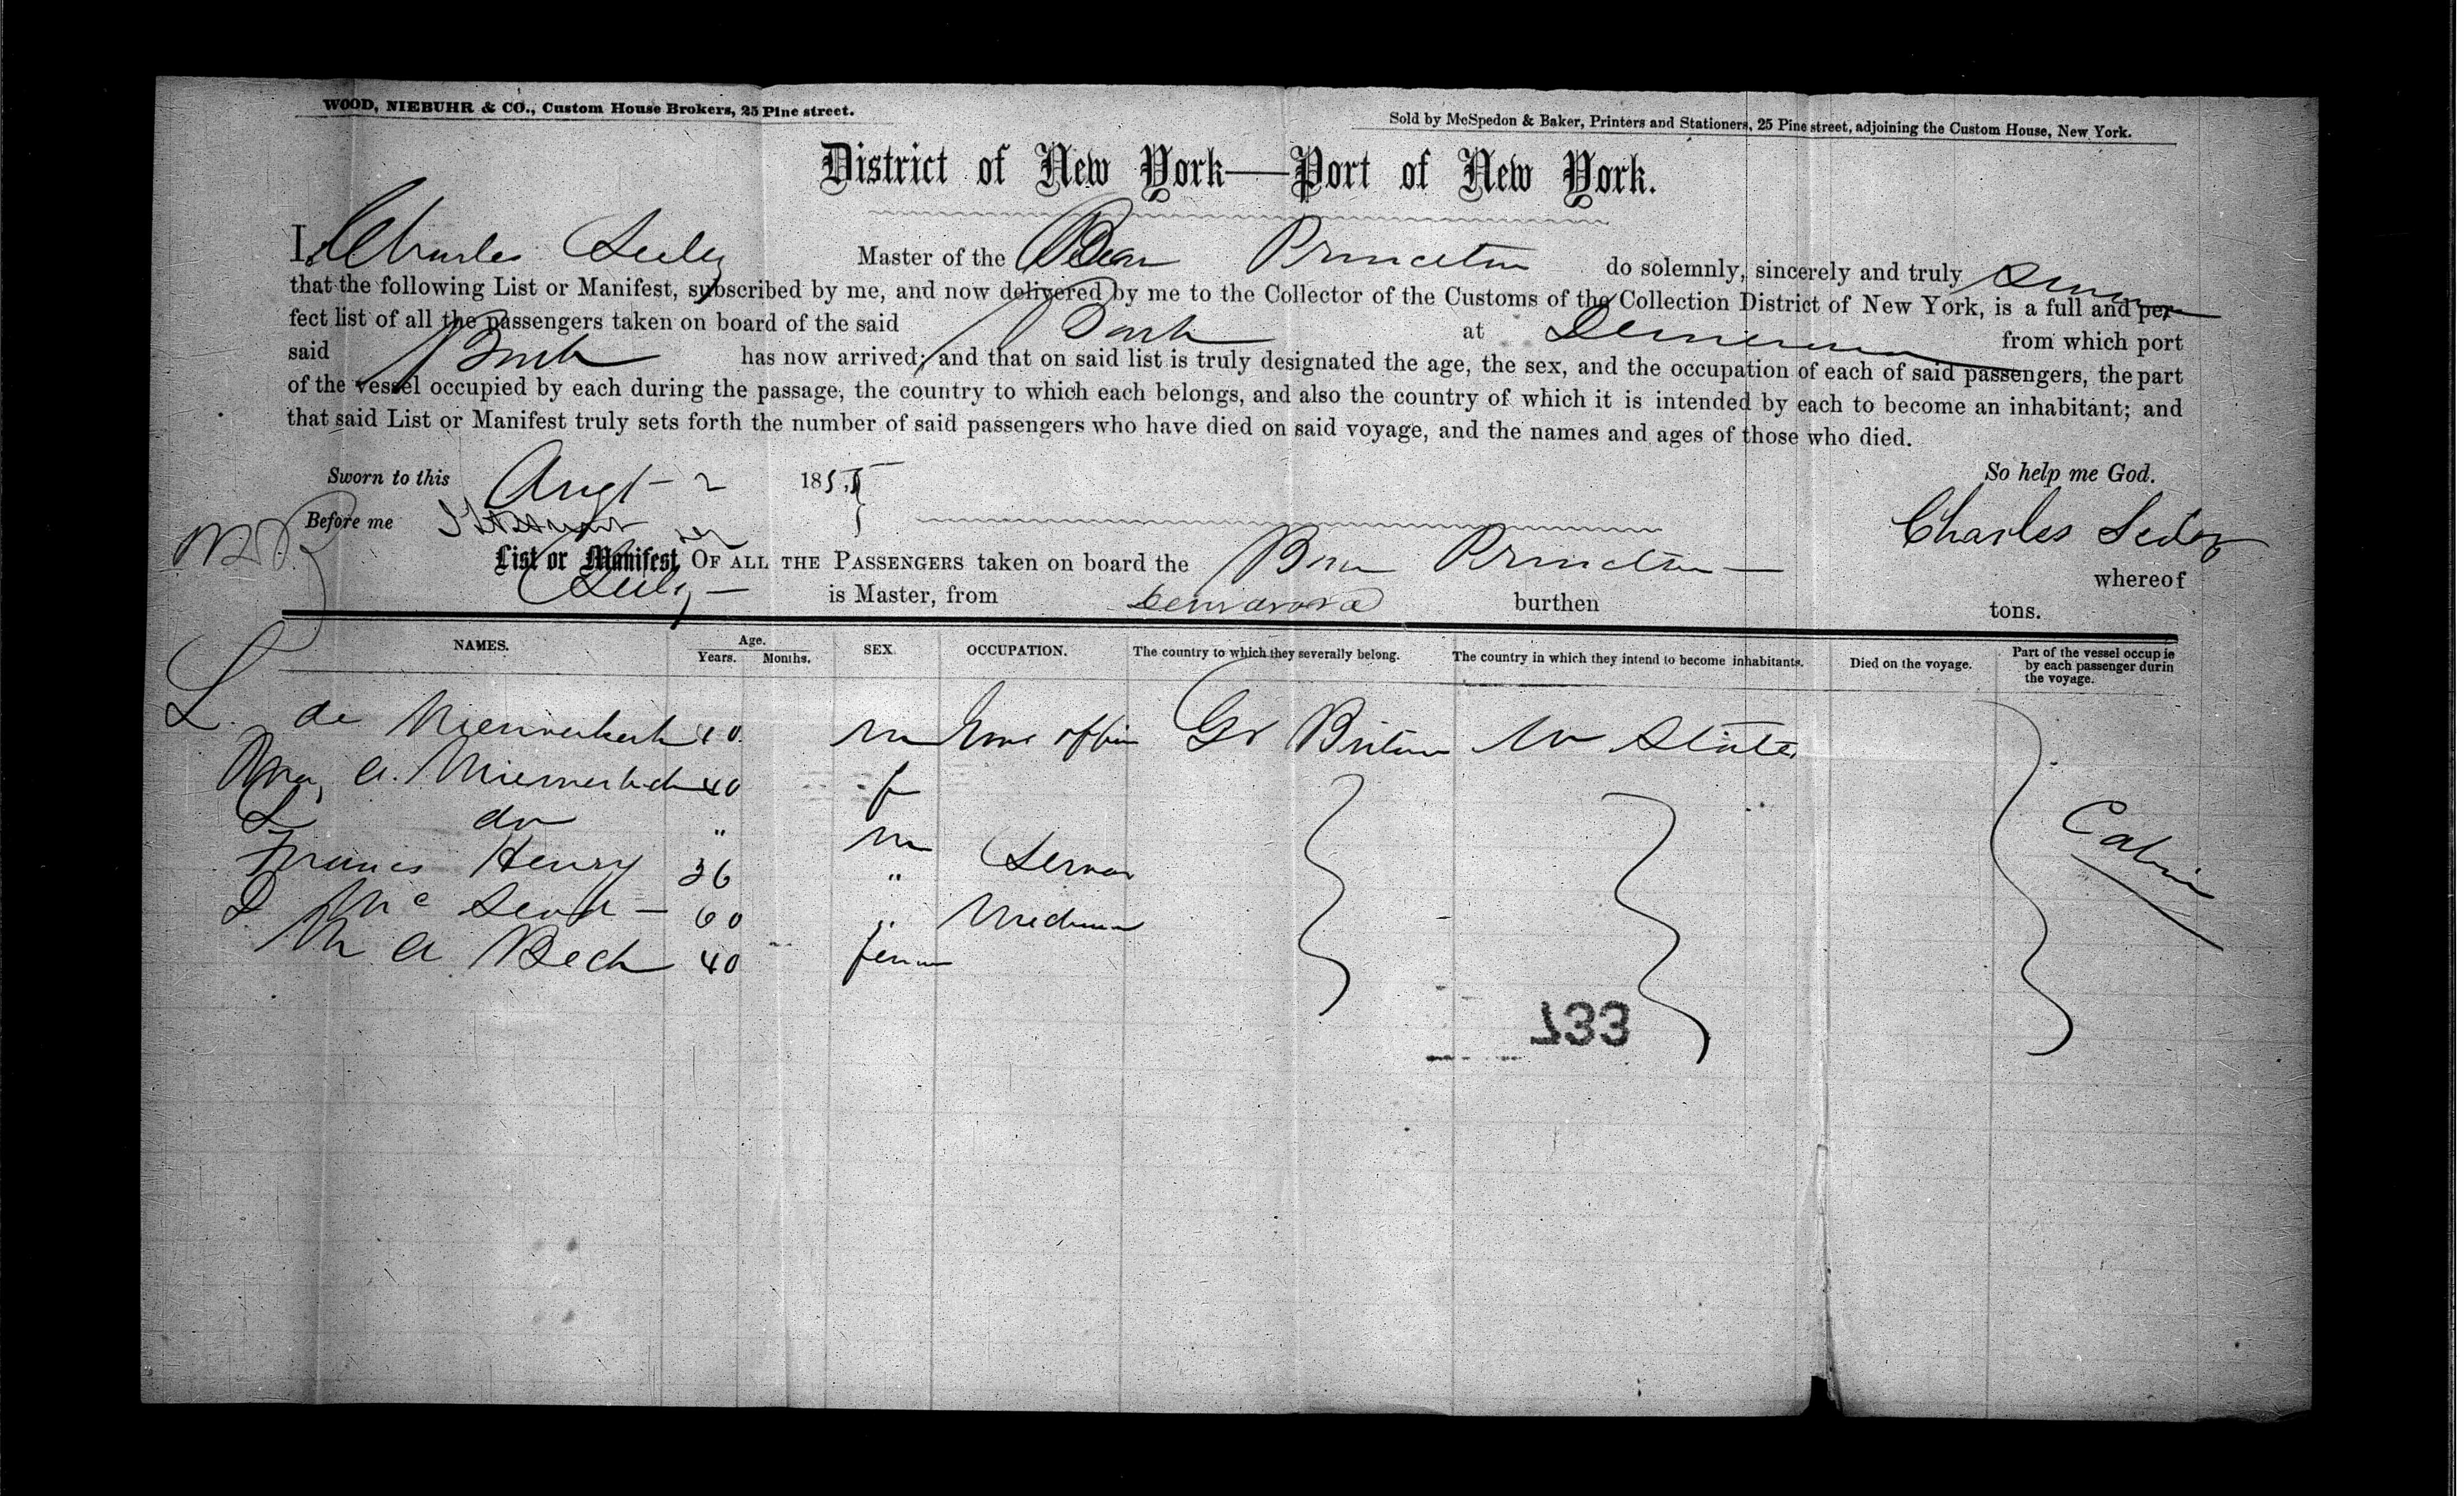 WOOD, NIEBUHR & CO., Custom House Brokers, 25 Pine street.
Sold by McSpedon & Baker, Printers and Stationers, 25 Pine street, adjoining the Custom House, New York.
District of New York—Port of New York.
I, Charles Seeley Master of the Princeton do solemnly, sincerely and truly swear
that the following List or Manifest, subscribed by me, and now delivered by me to the Collector of the Customs of the Collection District of New York, is a full and per-
fect list of all the passengers taken on board of the said Bark at Demerara from which port
said Bark has now arrived; and that on said list is truly designated the age, the sex, and the occupation of each of said passengers, the part
of the vessel occupied by each during the passage, the country to which each belongs, and also the country of which it is intended by each to become an inhabitant; and
that said List or Manifest truly sets forth the number of said passengers who have died on said voyage, and the names and ages of those who died.
Sworn to this Augt 2 1855 So help me God.
Before me Charles Seeley
List or Manifest OF ALL THE PASSENGERS taken on board the Princeton whereof
Seeley is Master, from Demarara burthen tons.
NAMES. Age. Years. Months. SEX. OCCUPATION. The country to which they severally belong. The country in which they intend to become inhabitants. Died on the voyage. Part of the vessel occupie by each passenger durin the voyage.
L. de 40 m Gt Britain Un States
Mrs. A. 40 f
L do " m
Francis Henry 36 " Servan
Mc 60 "
M A Beck 40 fem
Cabin
733